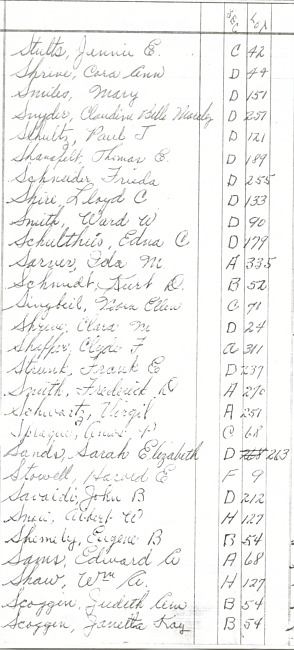 Sec Lot
Stults, Jennie E. C 42
Shreve, Cora Ann D 44
Smiles, Mary D 151
Snyder, Claudine Belle D 251
Shultz, Paul J D 121
Thomas E. D 189
Schneider, Frieda D 255
Shire, Lloyd C D 133
Smith, Ward W D 90
Schultheis, Edna C D 179
Sarver, Ida M A 335
Schmidt, Kurt D. B 52
Singbeil, Nora Ellen C 71
Shreve, Clara M D 24
Shaffer, Clyde F A 311
Strunk, Frank E D 237
Smith, Frederick D A 270
Schwartz, Virgil A 251
Sprague, C 68
Sands, Sarah Elizabeth D 263
Stowell, Harold E F 9
Savaidi, John B D 212
Albert W H 127
Eugene B B 54
Sams, Edward A A 68
Shaw, Wm A. H 127
Scoggin, Judith Ann B 54
Scoggin, Janetta Kay B 54